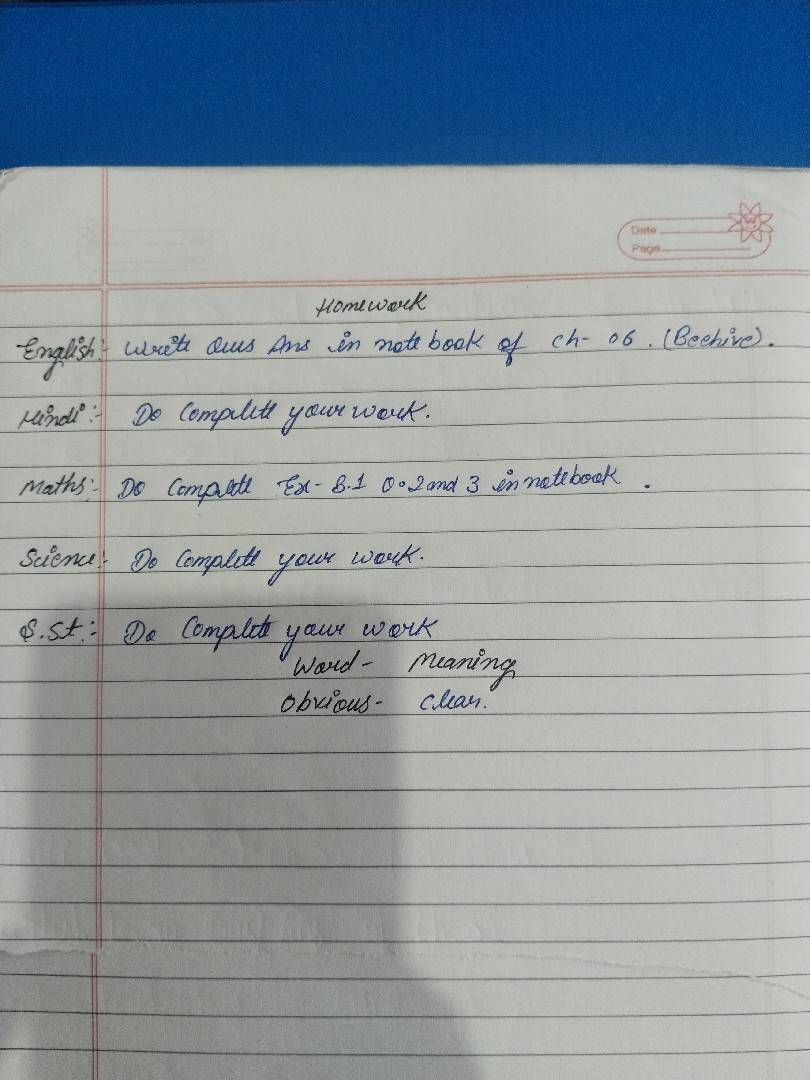 Date
Page
Homework
English:- Write Qus Ans in note book of ch- 06. (Beehive).
Hindi:- Do Complete your work.
Maths:- Do Complete Ex- 8.1 Q.2 and 3 in notebook.
Science:- Do Complete your work.
S.St.:- Do Complete your work
Word- Meaning
Obvious- Clear.